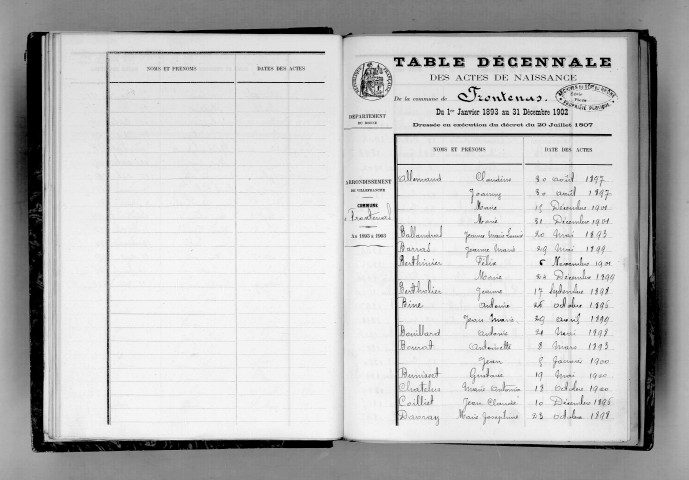 NOMS ET PRÉNOMS DATES DES ACTES
TABLE DÉCENNALE
DES ACTES DE NAISSANCE
De la commune de Frontenas.
Du 1er Janvier 1893 au 31 Décembre 1902
Dressée en exécution du décret du 20 Juillet 1807
DÉPARTEMENT
DU RHONE
ARRONDISSEMENT
DE VILLEFRANCHE
COMMUNE
Frontenas
NOMS ET PRÉNOMS DATE DES ACTES
Allemand Claudius 30 août 1897
Joanny 30 août 1897
Marie Décembre 1901
Marie 31 Décembre 1901
Ballandras Jeanne Marie Louise 20 mai 1893
Barras Jeanne Marie 29 Mai 1899
Berthinier Félix Novembre 1901
Marie Décembre 1899
Berthelier Jeanne 17 Septembre 1898
Bine Antonin 26 octobre 1896
Jean Marie 29 avril 1899
Bouillard Antonin 21 Mai 1898
Bourat Antoinette 8 Mars 1893
Jean 8 Janvier 1900
Gustave 19 Mai 1900
Chatelus Marie Antonia 18 Octobre 1900
Coilliet Jean Claude 10 Décembre 1896
Marie Joséphine 23 octobre 1898